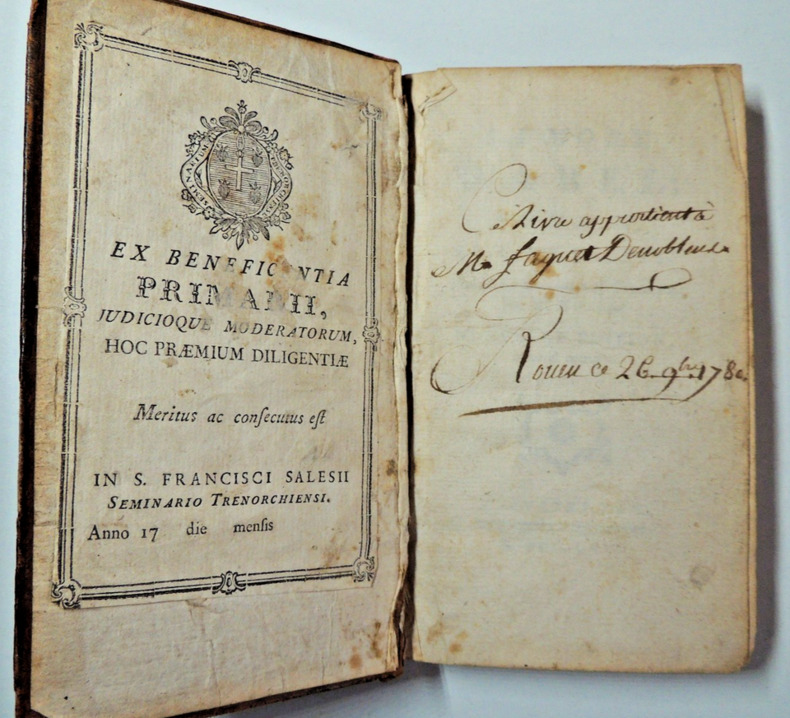 SEMINARIUM TRENORCHIENSE
EX BENEFICENTIA
PRIMARII,
JUDICIOQUE MODERATORUM,
HOC PRÆMIUM DILIGENTIÆ
Meritus ac conſecutus eſt
IN S. FRANCISCI SALESII
SEMINARIO TRENORCHIENSI.
Anno 17 die menſis
Ce Livre appartient à
Mr
Rouen ce 26 9bre 178